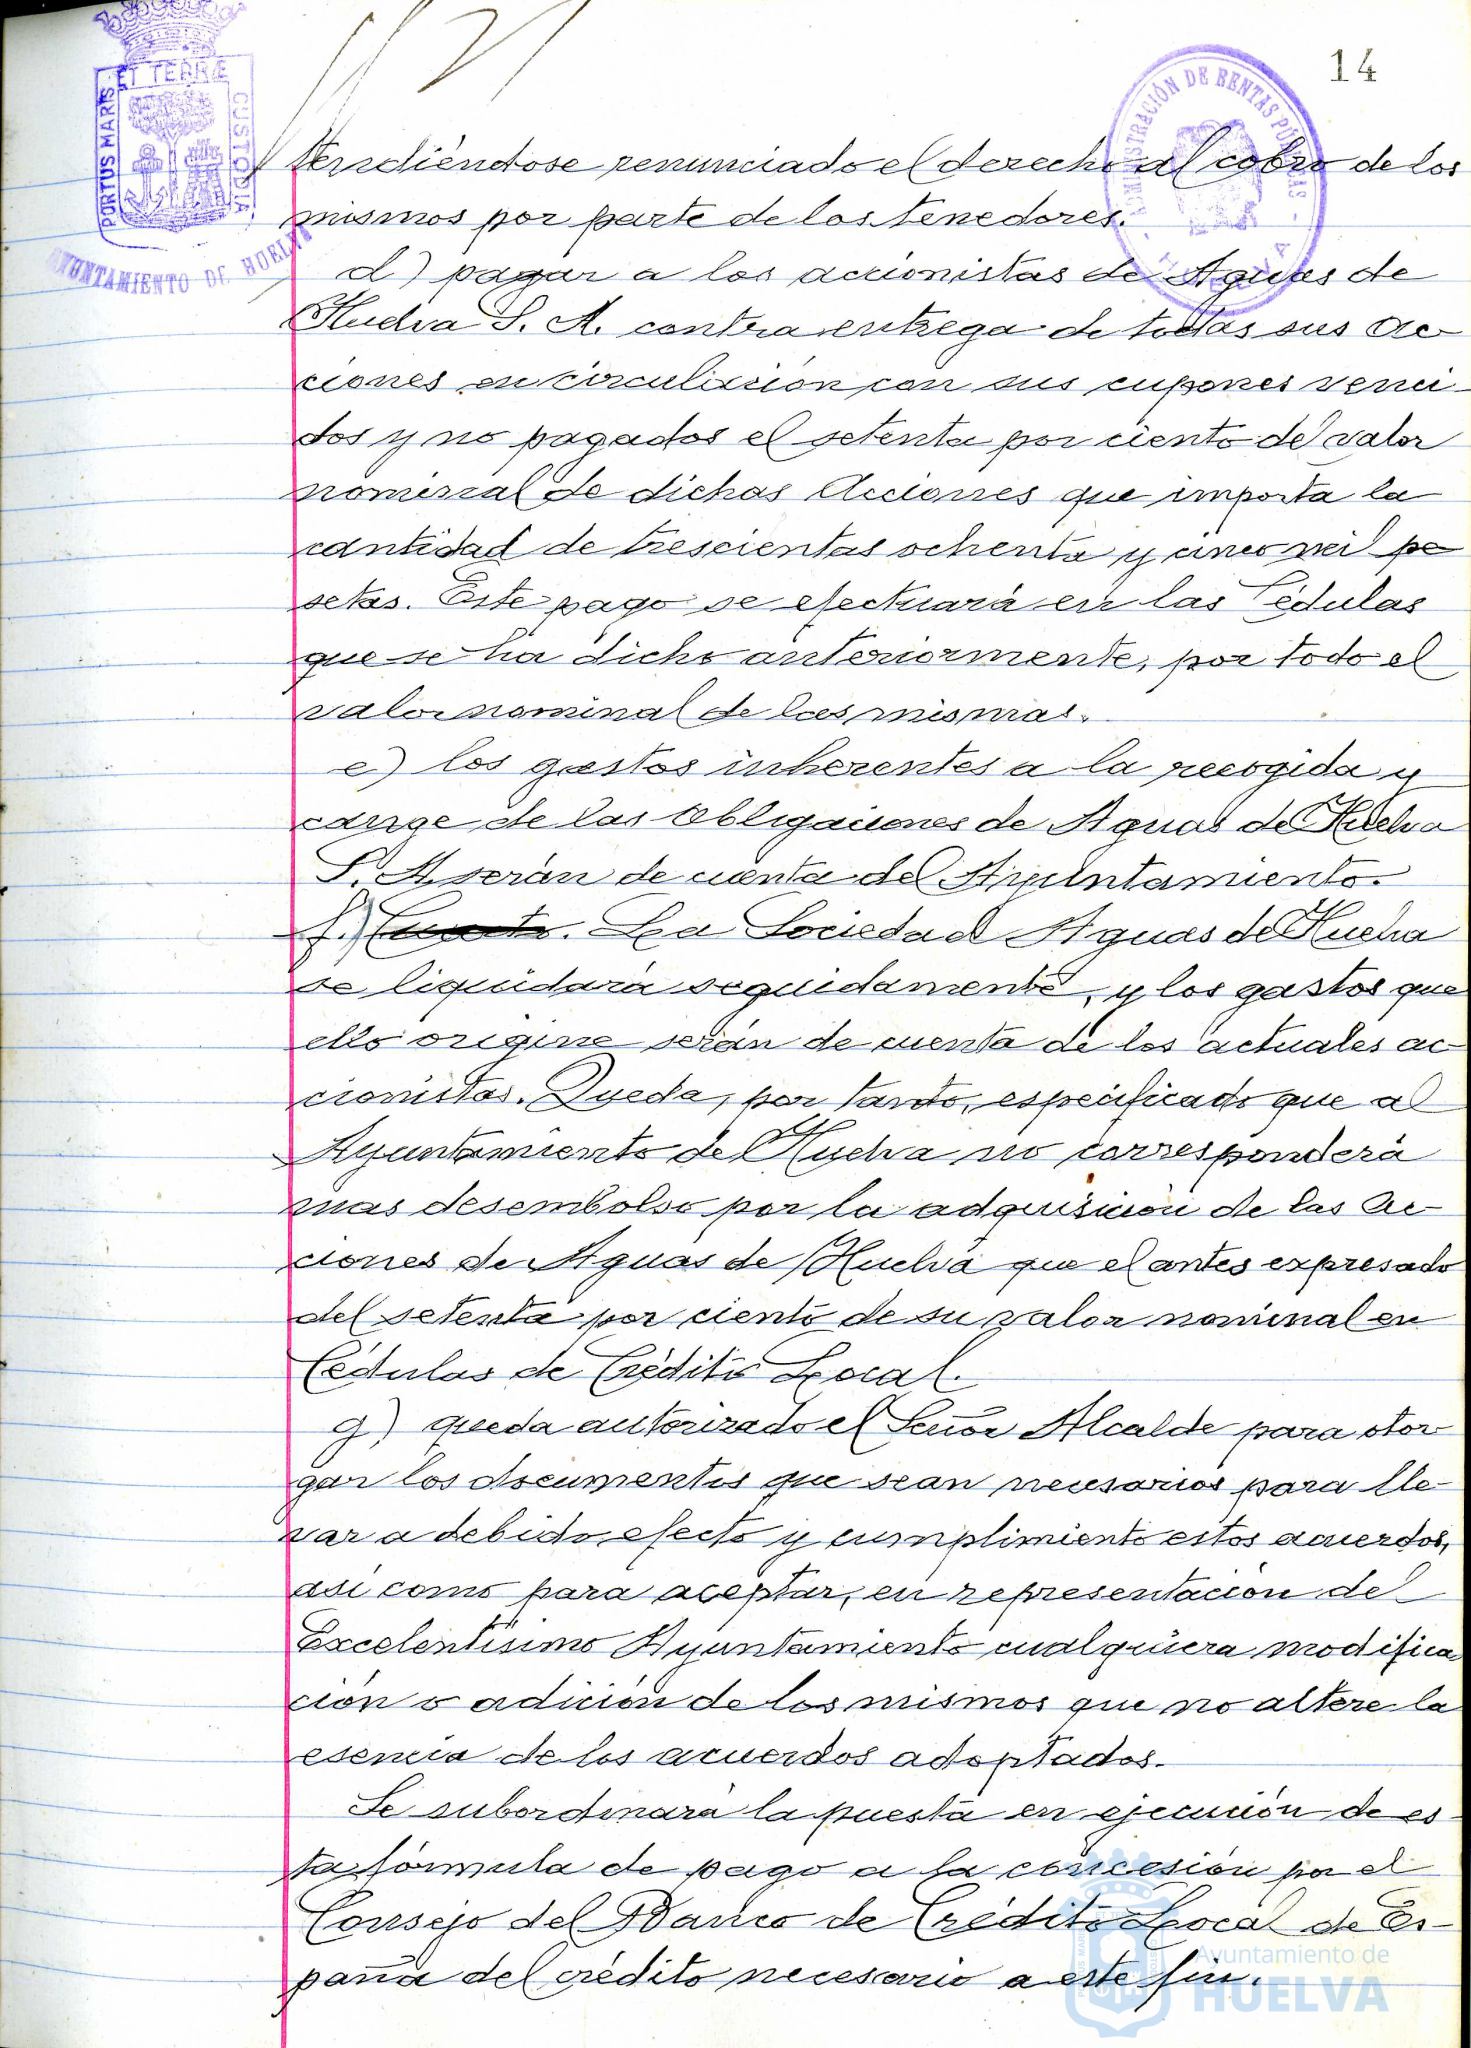 14
PORTUS MARIS ET TERRÆ CUSTODIA
AYUNTAMIENTO DE HUELVA
ADMINISTRACIÓN DE RENTAS PÚBLICAS
tendiéndose renunciado el derecho al cobro de los
mismos por parte de los tenedores.
d) pagar a los accionistas de Aguas de
Huelva S. A. contra entrega de todas sus ac-
ciones en circulación con sus cupones venci-
dos y no pagados el setenta por ciento del valor
nominal de dichas Acciones que importa la
cantidad de trescientas ochenta y cinco mil pe-
setas. Este pago se efectuará en las Cédulas
que se ha dicho anteriormente, por todo el
valor nominal de las mismas.
e) los gastos inherentes a la recogida y
cange de las Obligaciones de Aguas de Huelva
S. A. serán de cuenta del Ayuntamiento.
f.) La Sociedad Aguas de Huelva
se liquidará seguidamente, y los gastos que
ello origine serán de cuenta de los actuales ac-
cionistas. Queda, por tanto, especificado que al
Ayuntamiento de Huelva no corresponderá
mas desembolso por la adquisición de las Ac-
ciones de Aguas de Huelva que el antes expresado
del setenta por ciento de su valor nominal en
Cédulas de Crédito Local.
g) queda autorizado el Señor Alcalde para otor
gar los documentos que sean necesarios para lle-
var a debido efecto y cumplimiento estos acuerdos,
así como para aceptar, en representación del
Excelentísimo Ayuntamiento cualquiera modifica
ción o adición de los mismos que no altere la
esencia de los acuerdos adoptados.
Se subordinará la puesta en ejecución de es-
ta fórmula de pago a la concesión por el
Consejo del Banco de Crédito Local de Es-
paña del crédito necesario a este fin.
Ayuntamiento de
HUELVA